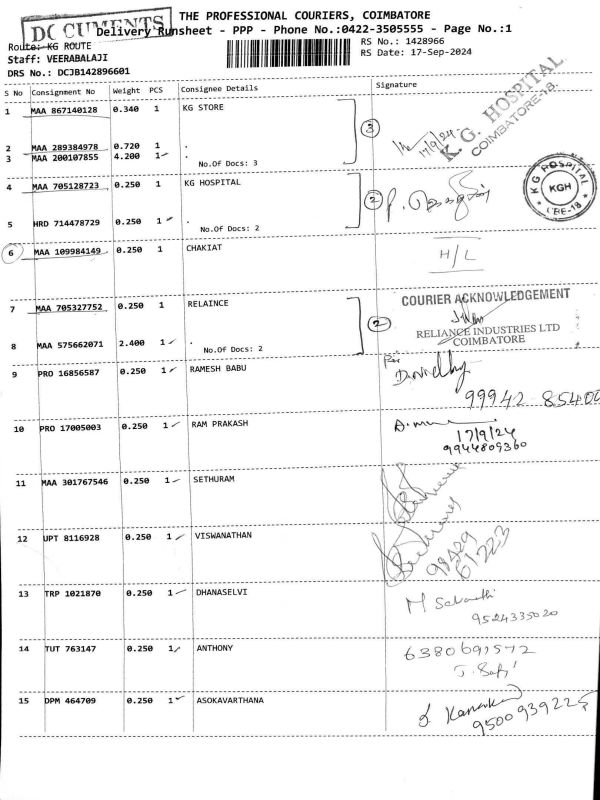 DOCUMENTS
THE PROFESSIONAL COURIERS, COIMBATORE
Delivery Runsheet - PPP - Phone No.:0422-3505555 - Page No.:1
Route: KG ROUTE
RS No.: 1428966
Staff: VEERABALAJI
RS Date: 17-Sep-2024
DRS No.: DCJB142896601
S No Consignment No Weight PCS Consignee Details Signature
1 MAA 867140128 0.340 1 KG STORE
K. G. HOSPITAL
COIMBATORE-18.
17/9/24
3
2 MAA 289384978 0.720 1 .
3 MAA 200107855 4.200 1
No.Of Docs: 3
4 MAA 705128723 0.250 1 KG HOSPITAL
2
KG HOSPITAL
KGH
CBE-18
5 HRD 714478729 0.250 1 .
No.Of Docs: 2
6 MAA 109984149 0.250 1 CHAKIAT
H/L
7 MAA 705327752 0.250 1 RELAINCE
COURIER ACKNOWLEDGEMENT
2
RELIANCE INDUSTRIES LTD
COIMBATORE
8 MAA 575662071 2.400 1 .
No.Of Docs: 2
9 PRO 16856587 0.250 1 RAMESH BABU
99942 85400
10 PRO 17005003 0.250 1 RAM PRAKASH
17/9/24
9944809360
11 MAA 301767546 0.250 1 SETHURAM
12 UPT 8116928 0.250 1 VISWANATHAN
99429
61223
13 TRP 1021870 0.250 1 DHANASELVI
9524335020
14 TUT 763147 0.250 1 ANTHONY
6380691572
15 DPM 464709 0.250 1 ASOKAVARTHANA
9500939225